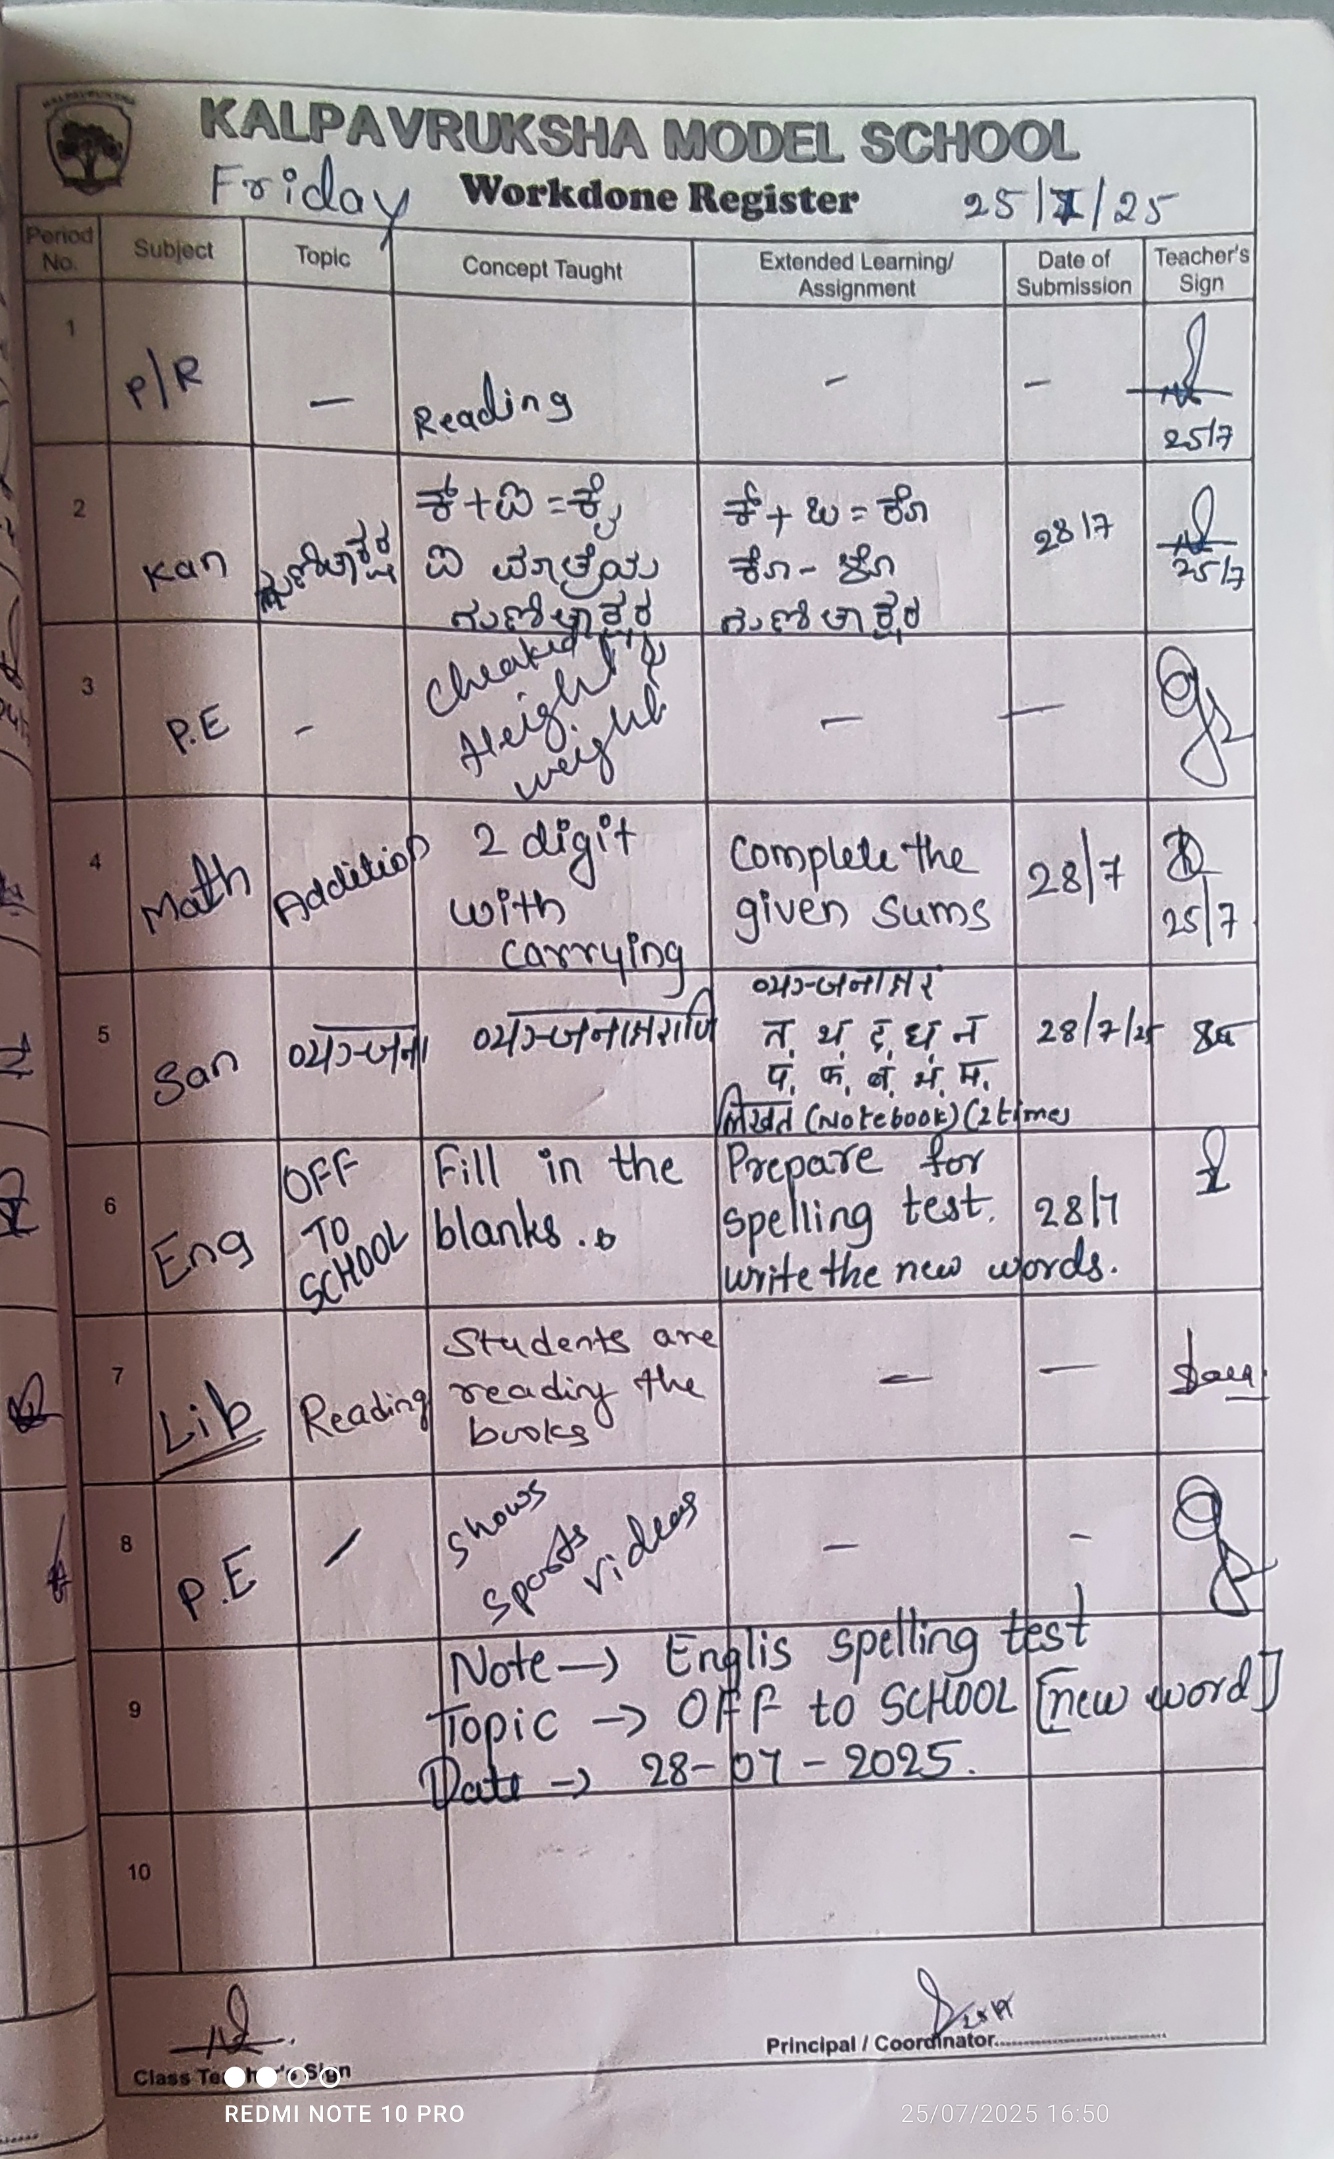 KALPAVRUKSHA
KALPAVRUKSHA MODEL SCHOOL
Friday Workdone Register 25/7/25
Period No. Subject Topic Concept Taught Extended Learning/ Assignment Date of Submission Teacher's Sign
1 P/R — Reading – –
25/7
2 Kan ಗುಣಿತಾಕ್ಷರ
ಕ್+ಐ=ಕೈ
ಐ ಮಾತ್ರೆಯ
ಗುಣಿತಾಕ್ಷರ
ಕ್+ಒ=ಕೊ
ಕೊ-ಳೊ
ಗುಣಿತಾಕ್ಷರ
28/7
25/7
3 P.E -
Height &
weight
— —
4 Math Addition
2 digit
with
carrying
Complete the
given sums
28/7
25/7
5 San
व्यञ्जनाक्षराणि
त, थ, द, ध, न
प, फ, ब, भ, म,
लिखत (Notebook) (2 times
28/7/25
6 Eng
OFF
TO
SCHOOL
Fill in the
blanks.
Prepare for
spelling test.
write the new words.
28/7
7 Lib Reading
Students are
reading the
books
— —
8 P.E –
Shows
Sports
videos
– -
9
Note → Englis spelling test
Topic → OFF to SCHOOL [new word]
Date → 28-07-2025.
10
Class Teacher's Sign
Principal / Coordinator
REDMI NOTE 10 PRO
25/07/2025 16:50